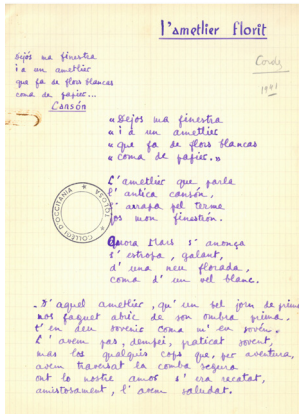 l'ametlier florit
Cordz
1981
Dejós ma finestra
i a un ametlièr
que fa de flors blancas
coma de papièr...
Cansón
« Dejos ma finestra
« i a un ametlier
« que fa de flors blancas
« coma de papier. »
L'ametlièr que parla
l'antica cansón,
s'arrapa pel terme
jos mon finestrón.
Quora Mars s'anonça
s'estropa, galant,
d'una neu florada,
coma d'un vel blanc.
D'aquel ametlier, qu'un bel jorn de prima
nos faguèt abric de son ombra prima,
t'en deu sovenir coma m'en soven.
L'avem pas, dempei, paticat sovent,
mas los qualques cops que, per aventura,
avem traversat la comba segura
ont lo nostre amor s'era recatat,
amistosament, l'avem saludat.
COLLÈGI D'OCCITANIA
TOLOSA